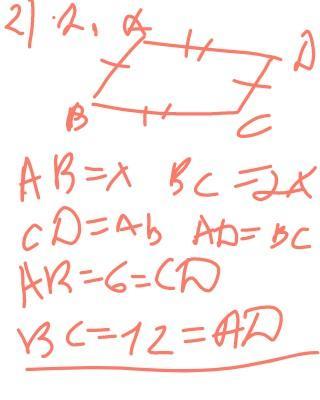 2) .2. A
D
B
C
AB=x BC=2x
CD=Ab AD=BC
AB=6=CD
BC=12=AD